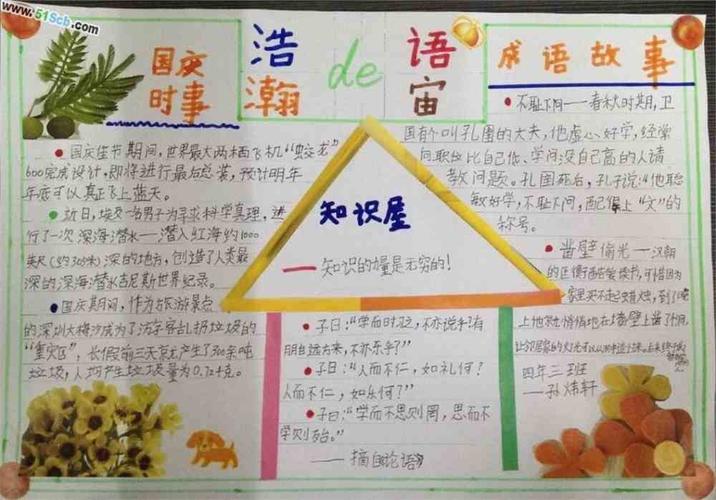 www.51Scb.com
国庆
时事
浩瀚
de
语宙
成语故事
国庆佳节期间,世界最大两栖飞机“蛟龙”
600完成设计,即将进行最后总装,预计明年
年底可以真正飞上蓝天。
近日,埃及一名男子为寻求科学真理,进
行了一次深海潜水——潜入红海约1000
英尺(约305米)深的地方,创造了人类最
深的深海潜水吉尼斯世界纪录。
国庆期间,作为旅游景点
的深圳大梅沙成为了历年客乱扔垃圾的
“重灾区”,长假前三天产生了300余吨
垃圾,人均产生垃圾量为0.724克。
知识屋
——知识的量是无穷的!
子曰:“学而时习,不亦说乎?有
朋自远方来,不亦乐乎?”
子曰:“人而不仁,如礼何?
人而不仁,如乐何?”
子曰:“学而不思则罔,思而不
学则殆。”
——摘自《论语》
不耻下问——春秋时期,卫
国有个叫孔圉的大夫,他虚心好学,经常
向职位比自己低、学问没自己高的人请
教问题。孔圉死后,孔子说:“他聪
敏好学,不耻下问,配得上“文”的
称号。
凿壁偷光——汉朝
的匡衡酷爱读书,可惜因为
家里买不起蜡烛,到了晚
上他就悄悄地在墙壁上凿了个洞,
让邻居家的火光可以从洞中透过来。
四年三班
——孙炜轩